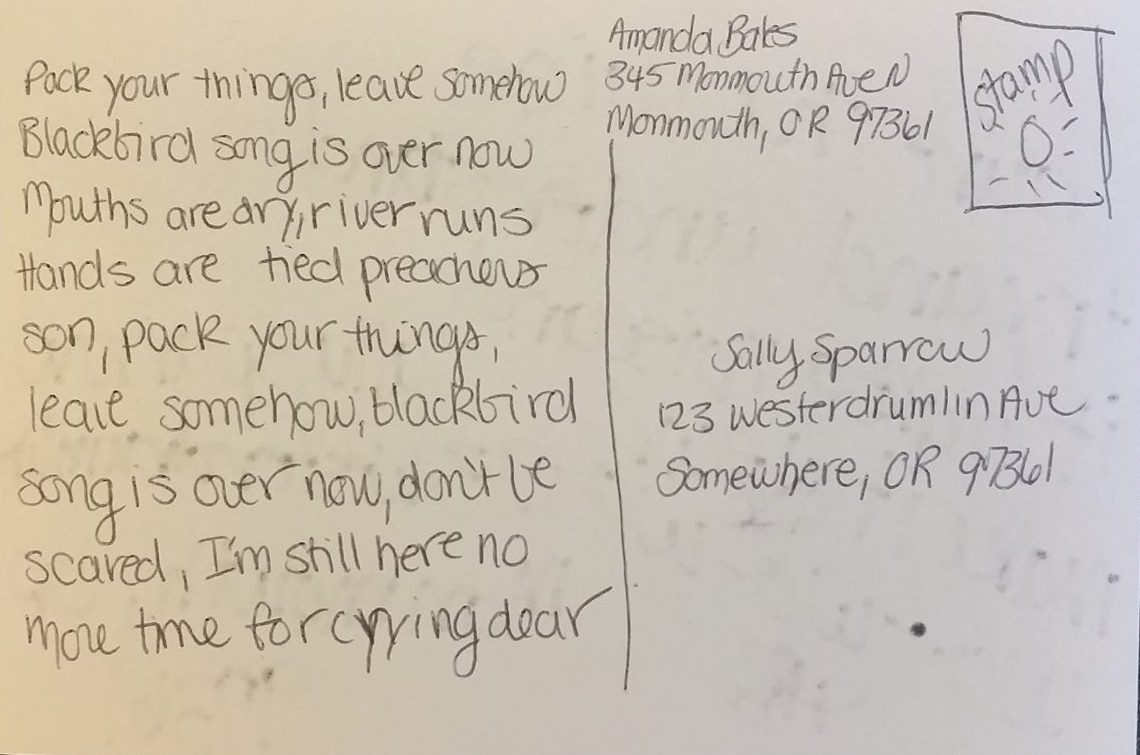 Pack your things, leave somehow
Blackbird song is over now
Mouths are dry, river runs
Hands are tied preachers
son, pack your things,
leave somehow, blackbird
song is over now, don't be
scared, I'm still here no
more time for cyying dear
Amanda Bates
345 Monmouth Ave N
Monmouth, OR 97361
Stamp
Sally Sparrow
123 Westerdrumlin Ave
Somewhere, OR 97361